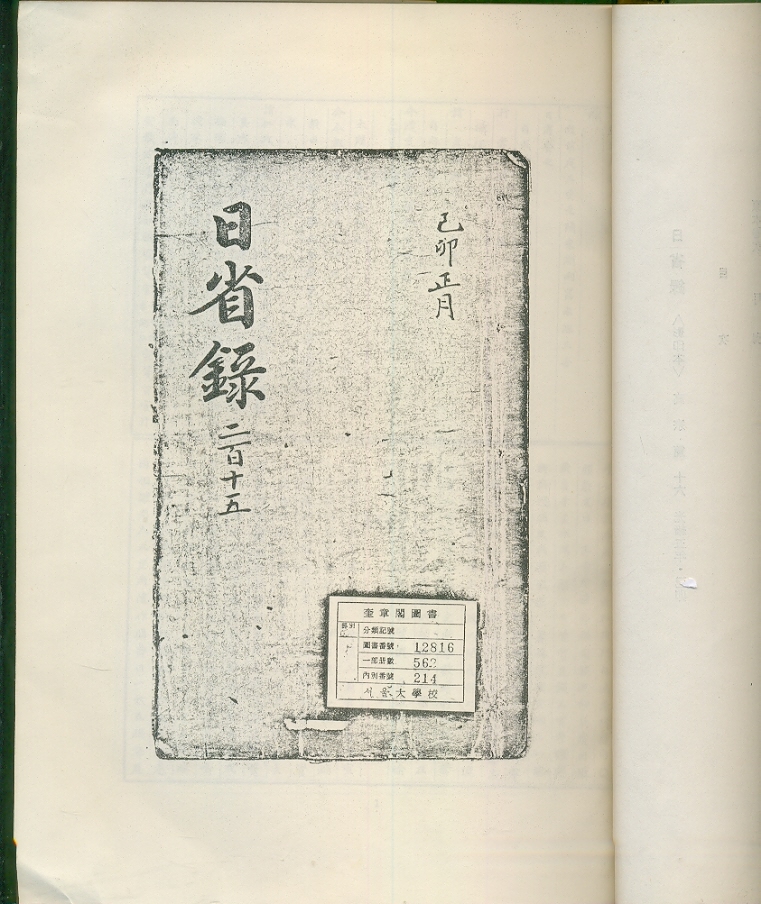 己卯正月
日省錄 二百十五
奎章閣圖書
分類記號
圖書番號 12816
一部冊數 562
內別番號 214
서울大學校